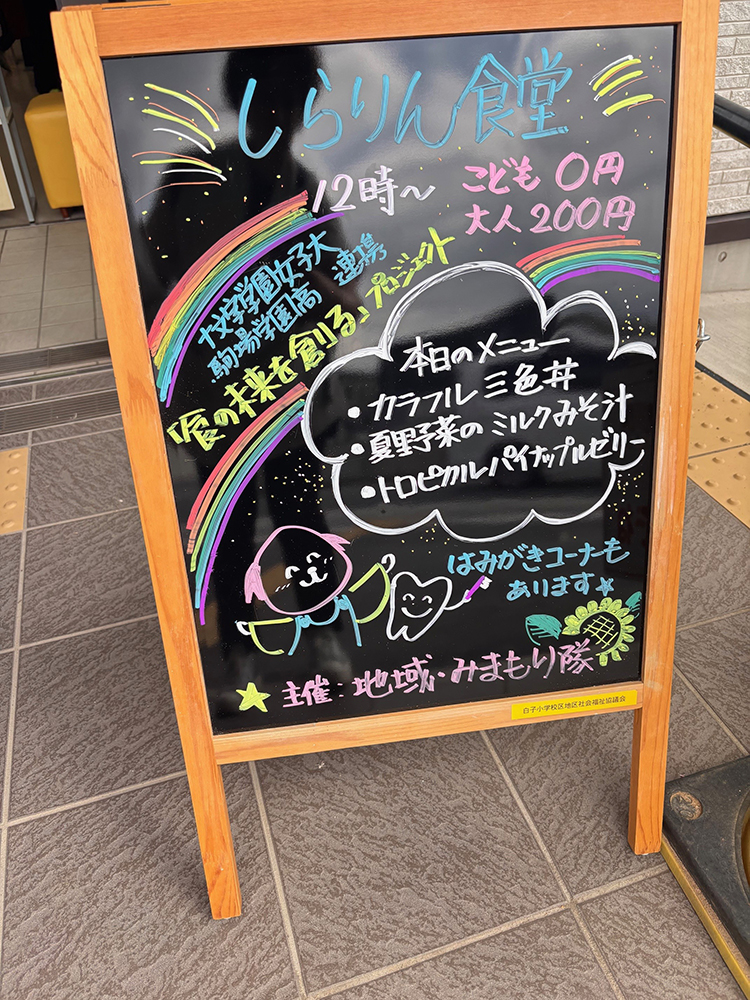 しらりん食堂
12時〜
こども 0円
大人 200円
十文字学園女子大
駒場学園高 連携
「食の未来を創る」プロジェクト
本日のメニュー
・カラフル三色丼
・夏野菜のミルクみそ汁
・トロピカルパイナップルゼリー
はみがきコーナーも
あります☆
主催:地域・みまもり隊
白子小学校区地区社会福祉協議会